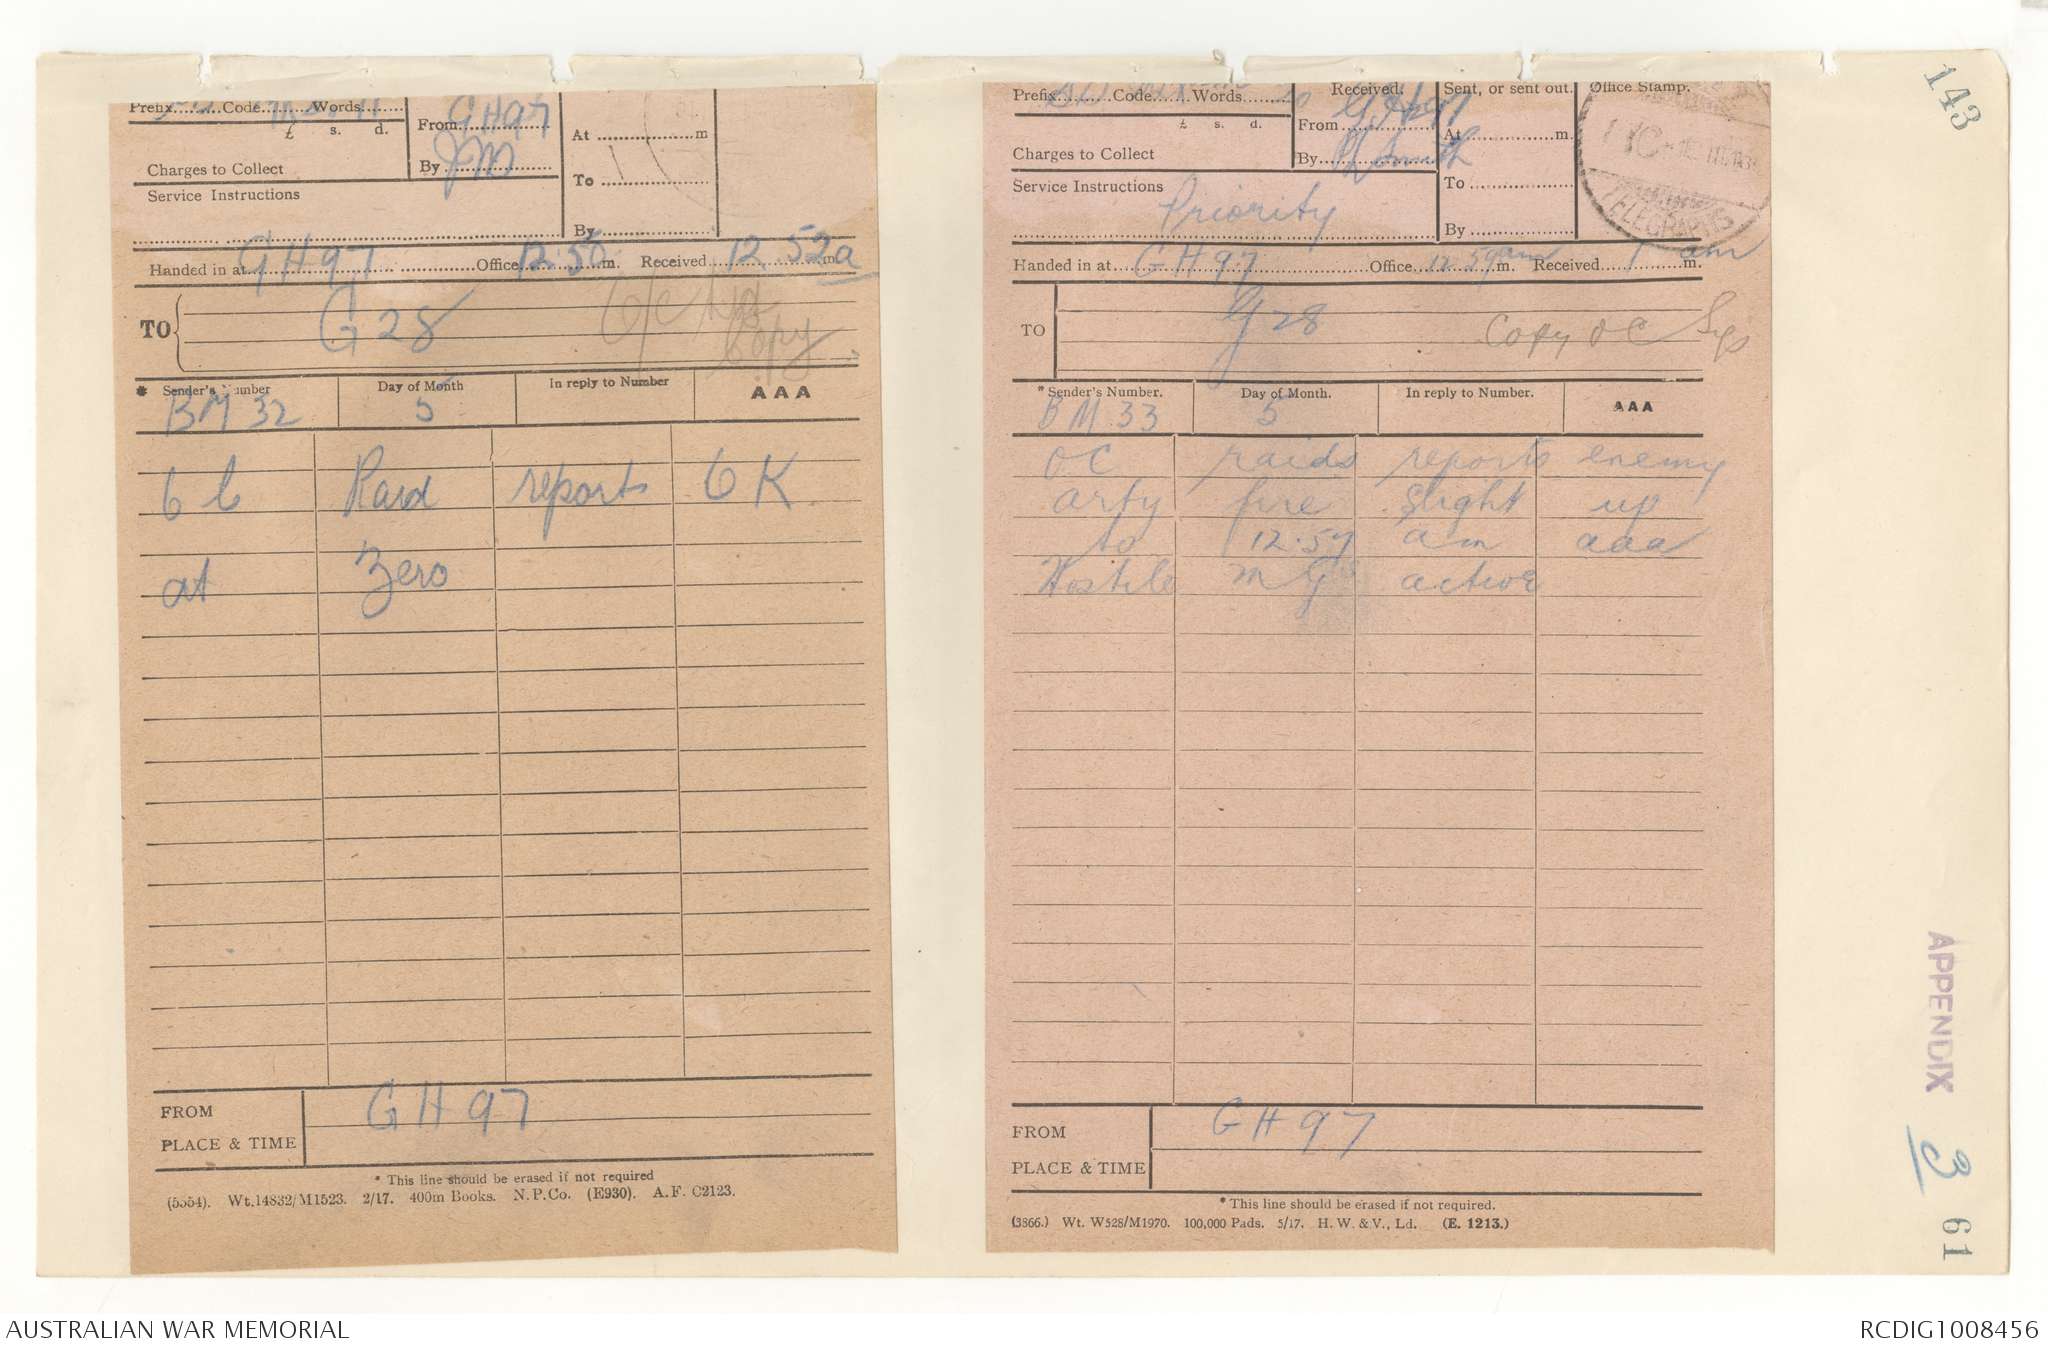 143
Prefix......Code......Words......
£ s. d.
Charges to Collect
Service Instructions
From GH97
By JM
At ..........m
To ..........
By ..........
Handed in at GH97 Office 12.50 m. Received 12.52a m
TO G28
Copy
* Sender's Number Day of Month In reply to Number AAA
BM 32 5
Raid reports OK
at Zero
FROM GH97
PLACE & TIME
* This line should be erased if not required
(5554). Wt.14832/M1523. 2/17. 400m Books. N.P.Co. (E930). A.F. C2123.
Prefix......Code......Words......
£ s. d.
Charges to Collect
Service Instructions
Priority
Received.
From GH97
By Smith
Sent, or sent out.
At ..........m.
To ..........
By ..........
Office Stamp.
TELEGRAPHS
Handed in at GH97 Office 12.59am m. Received 1 am m.
TO G28 Copy OC Sigs
* Sender's Number. Day of Month. In reply to Number. AAA
BM 33 5
OC raids reports enemy
arty fire slight up
to 12.59 am aaa
Hostile MG active
FROM GH97
PLACE & TIME
* This line should be erased if not required.
(3866.) Wt. W528/M1970. 100,000 Pads. 5/17. H. W. & V., Ld. (E. 1213.)
APPENDIX 3
61
AUSTRALIAN WAR MEMORIAL
RCDIG1008456